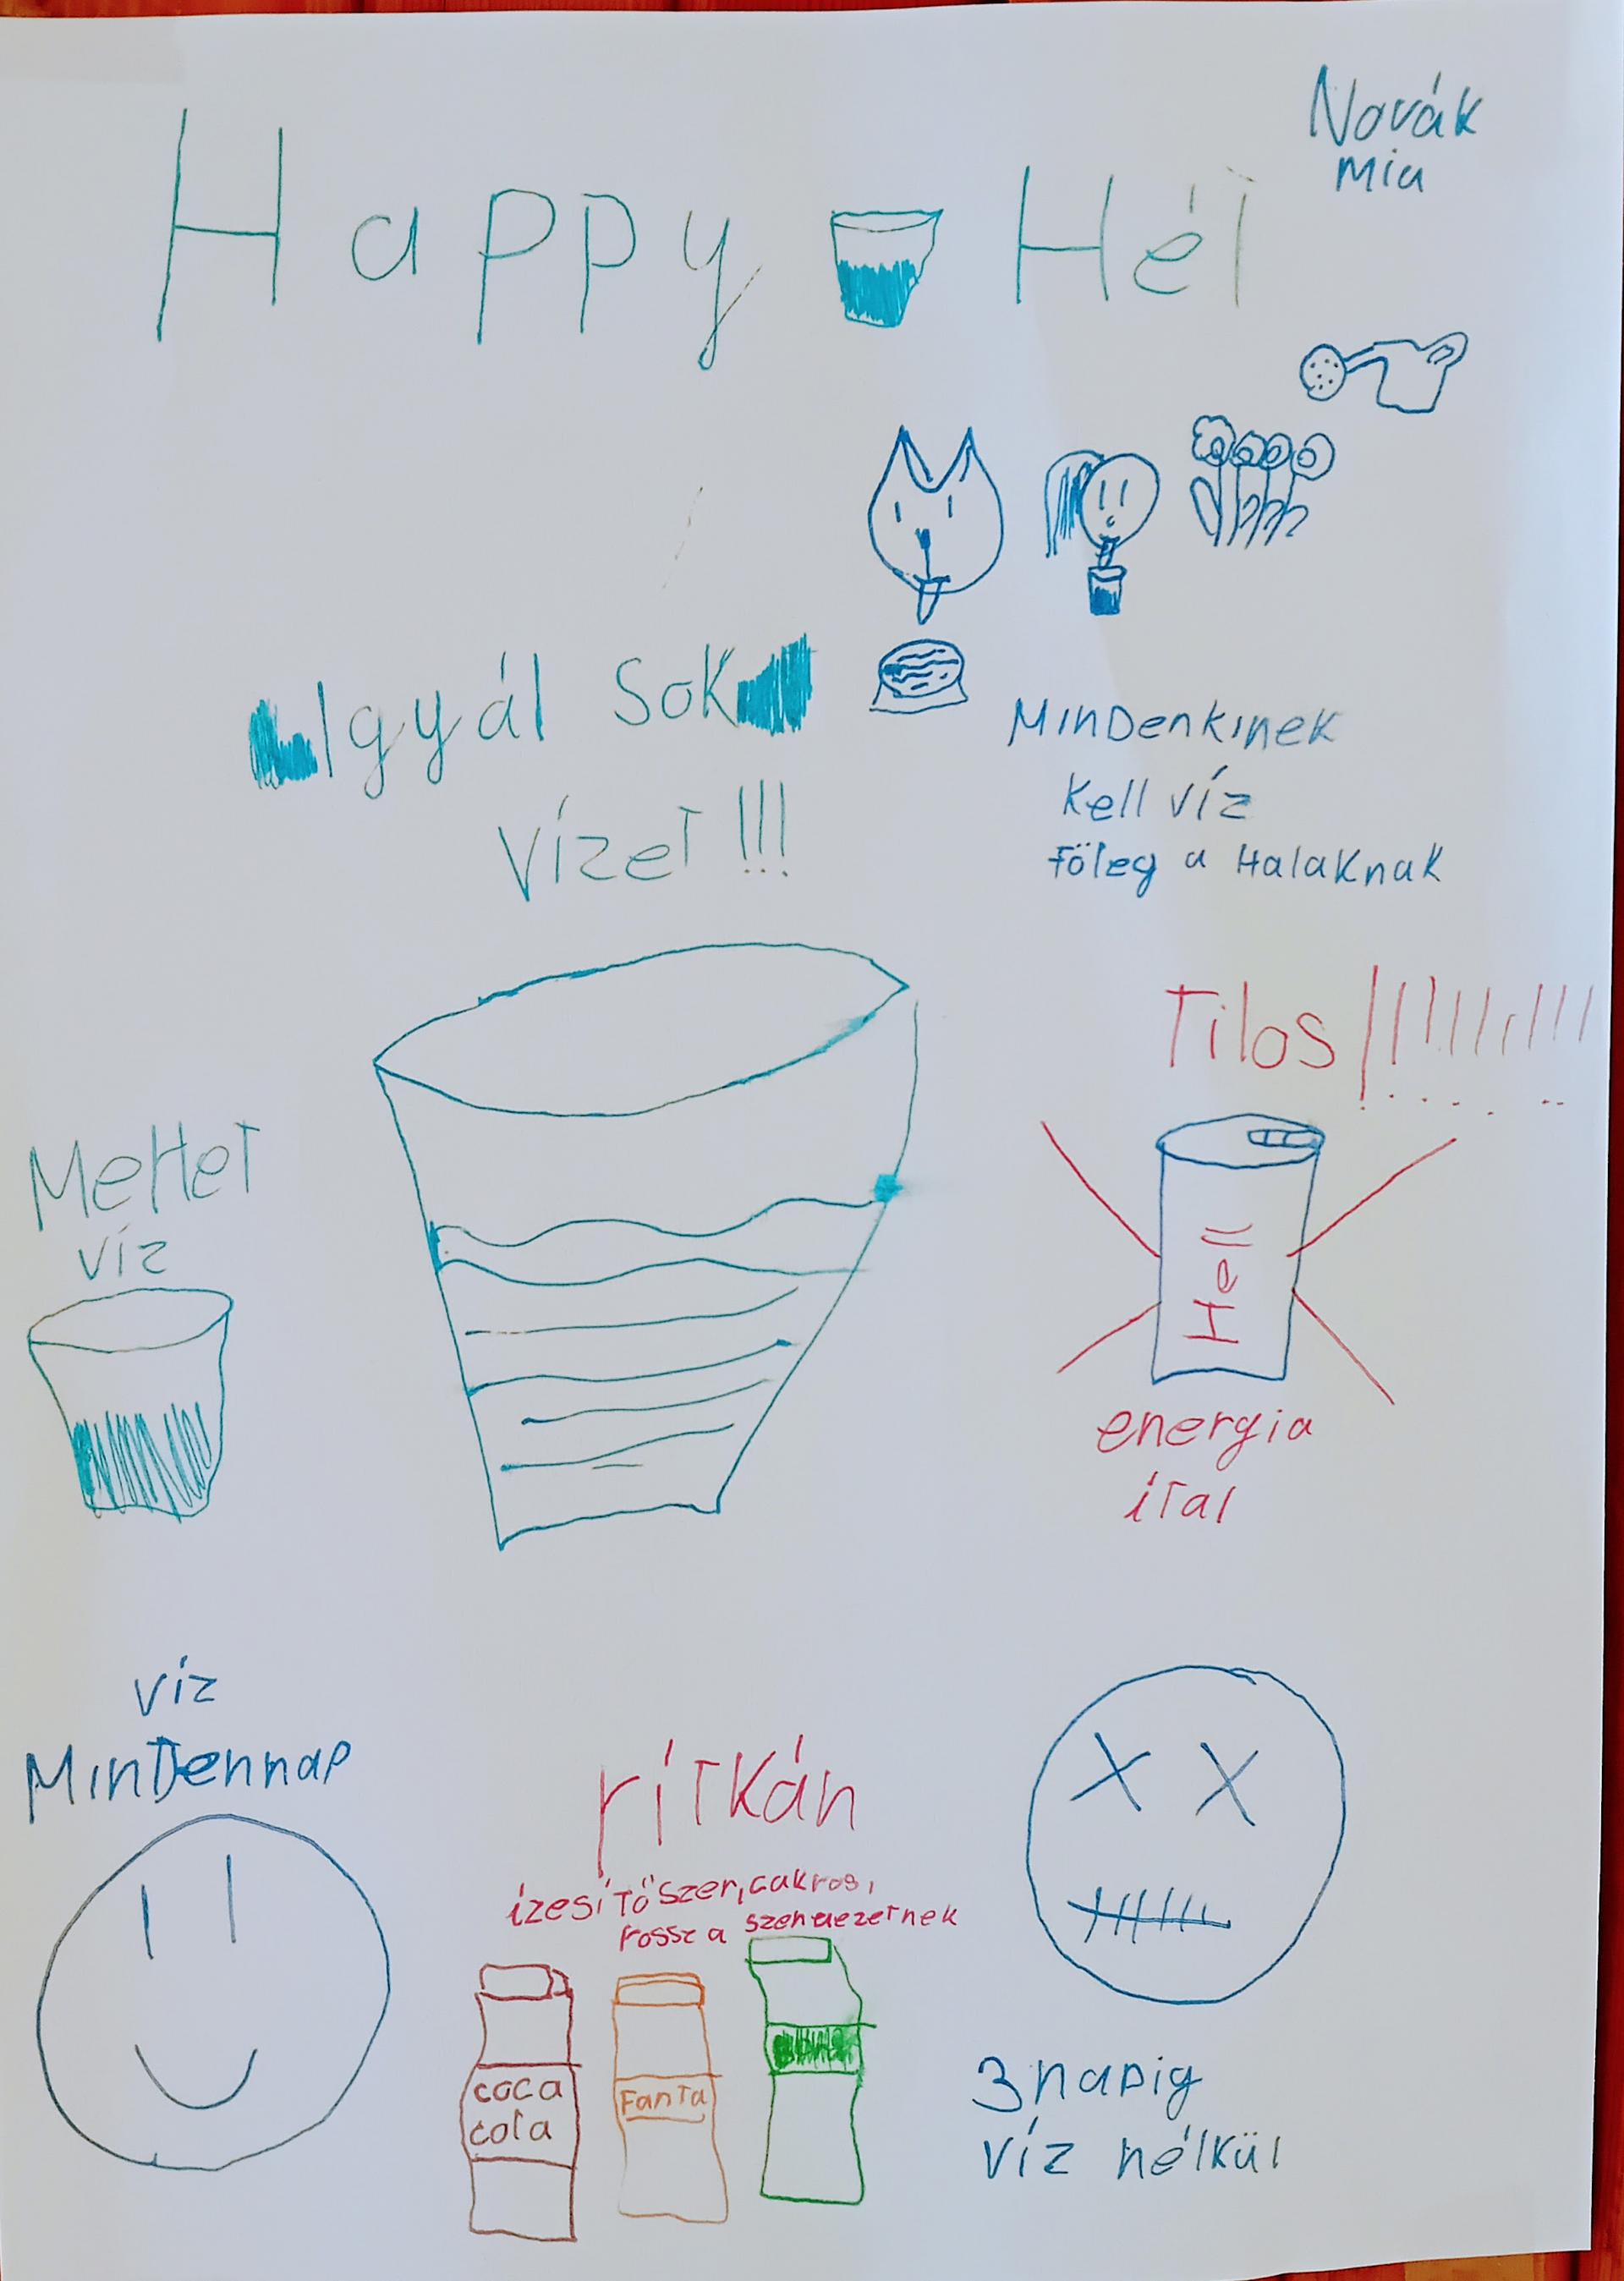 Novák
Mia
Happy Hét
Igyál sok
vízet !!!
MinDenkinek
kell víz
Főleg a Halaknak
Tilos !!!!!!!!!
Mehet
víz
Hell
energia
ítal
víz
MinDennap
rítkán
ízesítőszer, cukros,
rossz a szervezetnek
coca
cola
Fanta
3 napig
víz nélkül